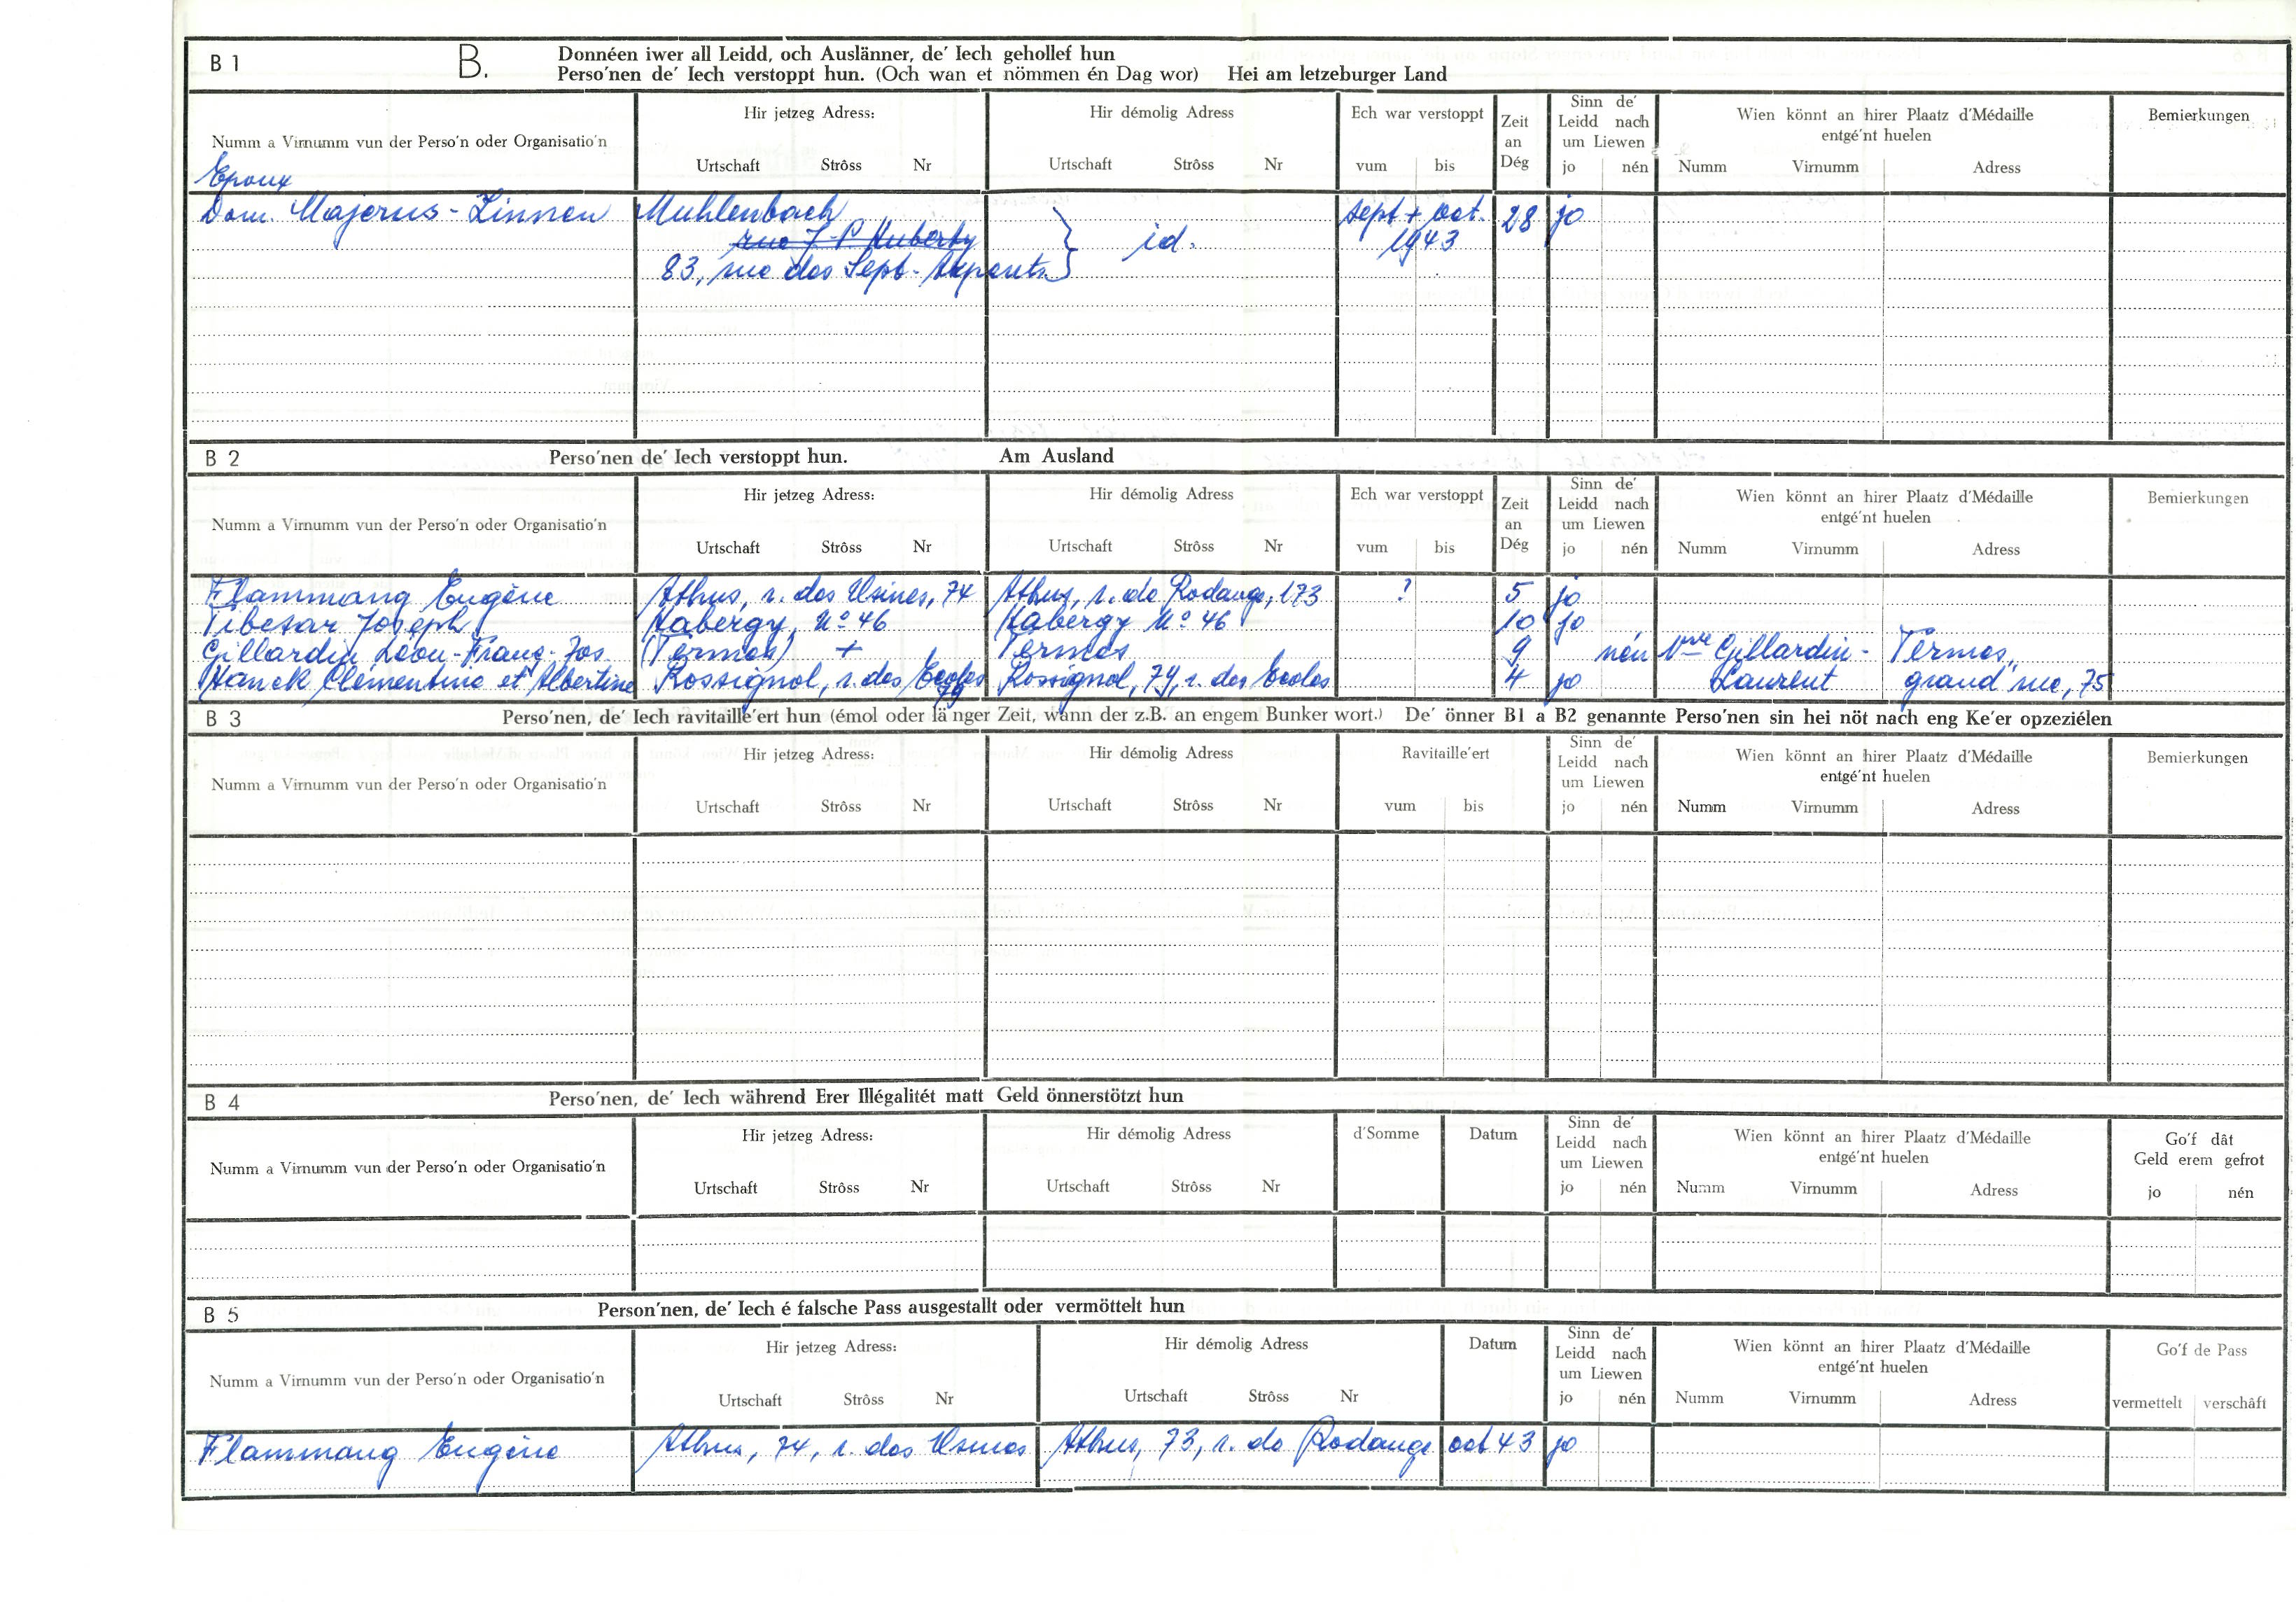 B 1 B. Donnéen iwer all Leidd, och Auslänner, de' Iech gehollef hun
Perso'nen de' Iech verstoppt hun. (Och wan et nömmen én Dag wor) Hei am letzeburger Land
Numm a Virnumm vun der Perso'n oder Organisatio'n
Hir jetzeg Adress:
Urtschaft Strôss Nr
Hir démolig Adress
Urtschaft Strôss Nr
Ech war verstoppt
vum bis
Zeit
an
Dég
Sinn de'
Leidd nach
um Liewen
jo nén
Wien könnt an hirer Plaatz d'Médaille
entgé'nt huelen
Numm Virnumm Adress
Bemierkungen
Epoux
Dom. Majerus-Linnen Muhlenbach sept + oct. 28 jo
rue J-P Huberty } id. 1943
83, rue des Sept-Arpents
B 2 Perso'nen de' Iech verstoppt hun. Am Ausland
Numm a Virnumm vun der Perso'n oder Organisatio'n
Hir jetzeg Adress:
Urtschaft Strôss Nr
Hir démolig Adress
Urtschaft Strôss Nr
Ech war verstoppt
vum bis
Zeit
an
Dég
Sinn de'
Leidd nach
um Liewen
jo nén
Wien könnt an hirer Plaatz d'Médaille
entgé'nt huelen
Numm Virnumm Adress
Bemierkungen
Flammang Eugène Athus, r. des Usines, 74 Athus, r. de Rodange, 173 ? 5 jo
Tibesar Joseph Habergy, No 46 Habergy No 46 10 jo
Gillardin Léon-Franç-Jos (Termes) + Termes 9 nén Vve Gillardin- Termes,
Hanck Clémentine et Albertine Rossignol, r. des Ecoles 79 Rossignol, 79, r. des Ecoles 4 jo Laurent grand'rue, 75
B 3 Perso'nen, de' Iech ravitaille'ert hun (émol oder länger Zeit, wann der z.B. an engem Bunker wort.) De' önner B1 a B2 genannte Perso'nen sin hei nöt nach eng Ke'er opzeziélen
Numm a Virnumm vun der Perso'n oder Organisatio'n
Hir jetzeg Adress:
Urtschaft Strôss Nr
Hir démolig Adress
Urtschaft Strôss Nr
Ravitaille'ert
vum bis
Sinn de'
Leidd nach
um Liewen
jo nén
Wien könnt an hirer Plaatz d'Médaille
entgé'nt huelen
Numm Virnumm Adress
Bemierkungen
B 4 Perso'nen, de' Iech während Erer Illégalitét matt Geld önnerstötzt hun
Numm a Virnumm vun der Perso'n oder Organisatio'n
Hir jetzeg Adress:
Urtschaft Strôss Nr
Hir démolig Adress
Urtschaft Strôss Nr
d'Somme
Datum
Sinn de'
Leidd nach
um Liewen
jo nén
Wien könnt an hirer Plaatz d'Médaille
entgé'nt huelen
Numm Virnumm Adress
Go'f dât
Geld erem gefrot
jo nén
B 5 Person'nen, de' Iech é falsche Pass ausgestallt oder vermöttelt hun
Numm a Virnumm vun der Perso'n oder Organisatio'n
Hir jetzeg Adress:
Urtschaft Strôss Nr
Hir démolig Adress
Urtschaft Strôss Nr
Datum
Sinn de'
Leidd nach
um Liewen
jo nén
Wien könnt an hirer Plaatz d'Médaille
entgé'nt huelen
Numm Virnumm Adress
Go'f de Pass
vermettelt verschâft
Flammang Eugène Athus, 74, r. des Usines Athus, 73, r. de Rodange oct 43 jo